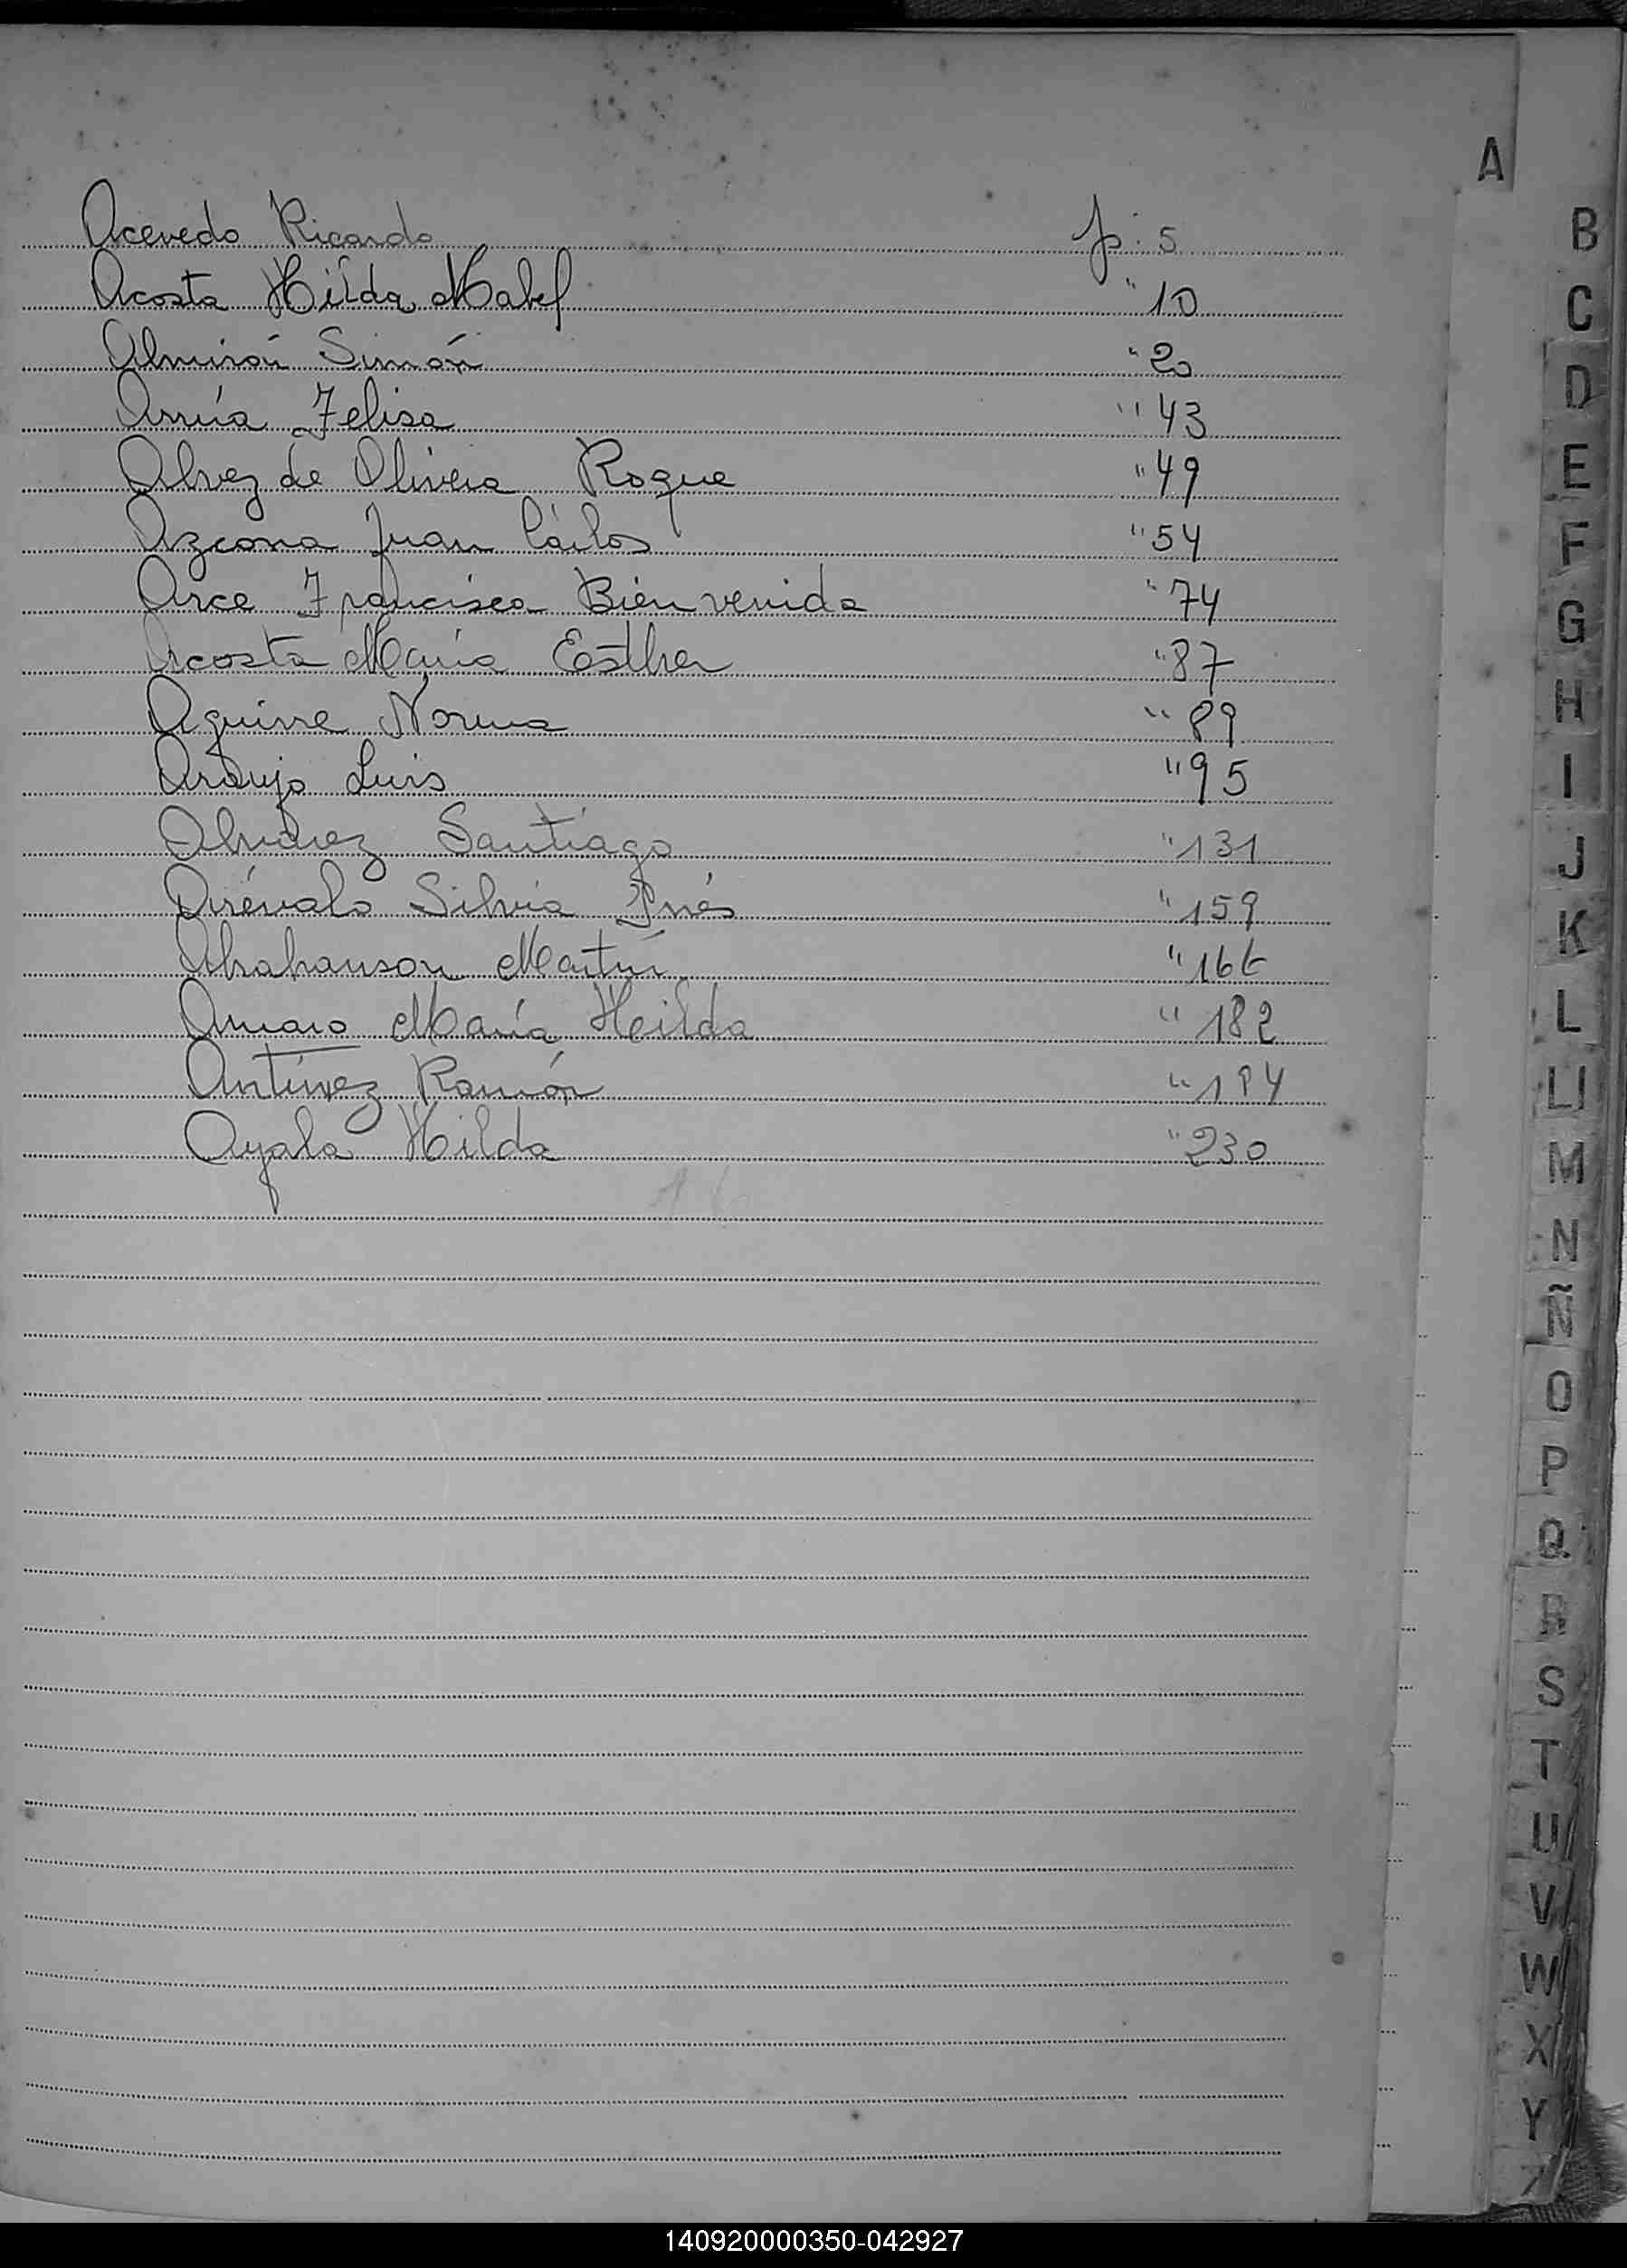 A
Acevedo Ricardo p. 5
Acosta Hilda Mabel " 10
Almirón Simón " 20
Arrúa Felisa " 43
Alvez de Olivera Roque " 49
Azcona Juan Cárlos " 54
Arce Francisca Bienvenida " 74
Acosta María Esther " 87
Aguirre Norma " 89
Araujo Luis " 95
Alvarez Santiago " 131
Arévalo Silvia Inés " 159
Abrahanson Martín " 166
Amaro María Heilda " 182
Antúnez Ramón " 194
Ayala Hilda " 230
B
C
D
E
F
G
H
I
J
K
L
LL
M
N
Ñ
O
P
Q
R
S
T
U
V
W
X
Y
Z
140920000350-042927